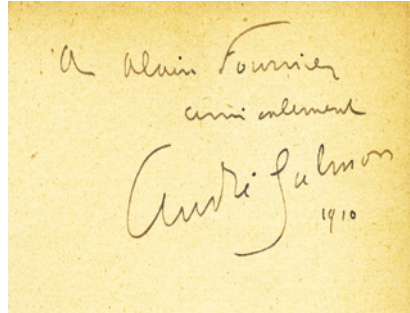 A Alain Fournier
amicalement
André Salmon
1910